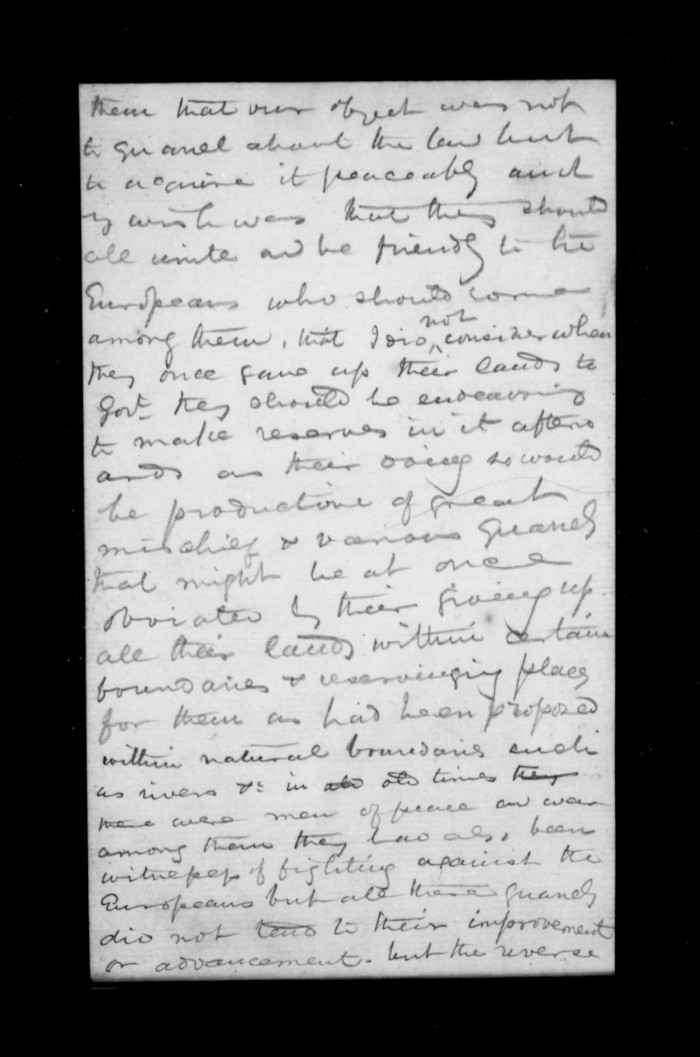 them that our object was not
to quarrel about the land but
to acquire it peaceably and
my wish was that they should
all unite and be friendly to the
Europeans who should come
among them, that I did not consider when
they once gave up their lands to
Govt. they should be endeavoring
to make reserves in it afterw
ards as their doing so would
be productive of great
mischief & various quarrels
that might be at once
obviated by their giving up
all their lands within certain
boundaries & reserving places
for them as had been proposed
within natural boundaries such
as rivers &c in old old times they
there were men of peace and war
among them they had also been
witnesses of fighting against the
Europeans but all these quarrels
did not tend to their improvement
or advancement. but the reverse